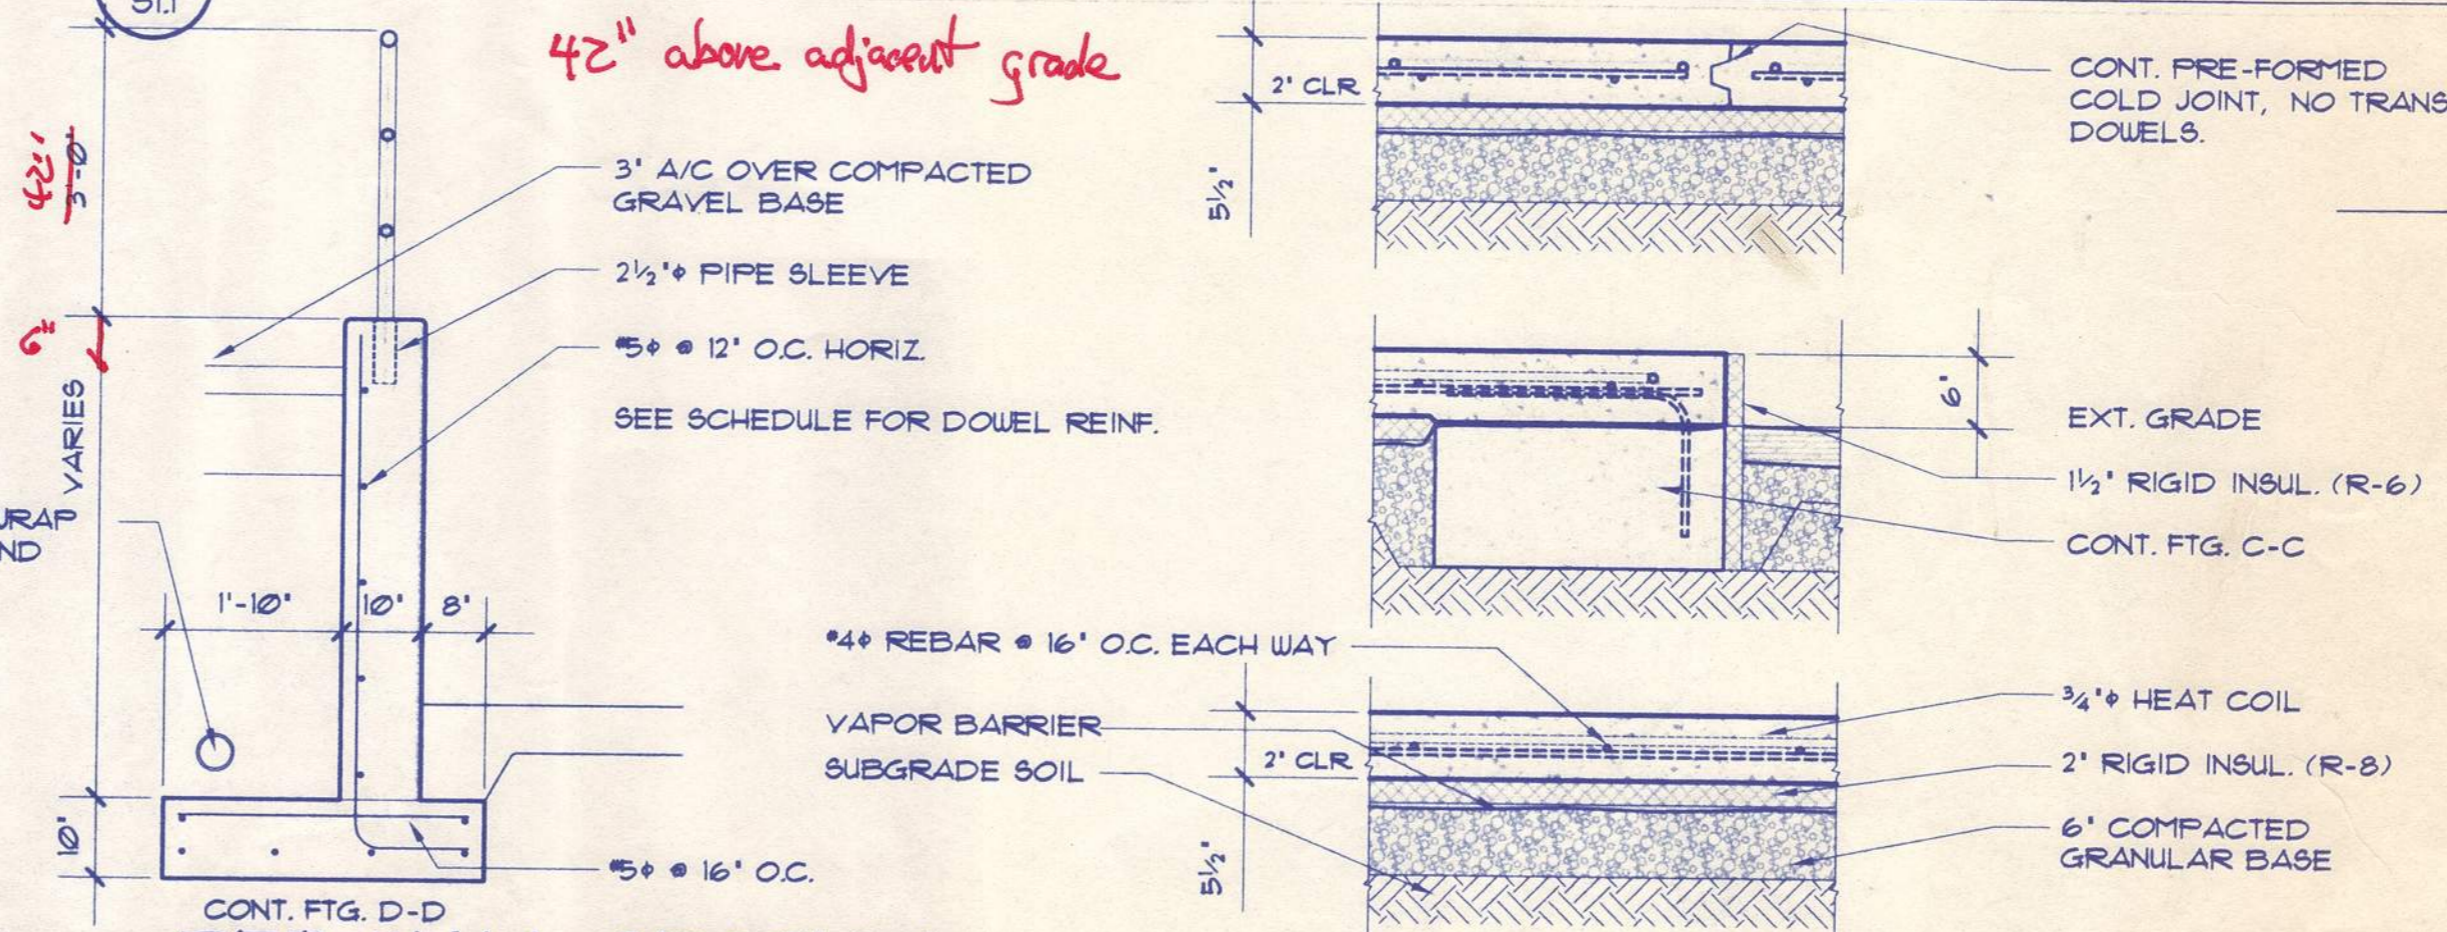 S1.1
42" above adjacent grade
42"
3'-0"
6"
VARIES
3" A/C OVER COMPACTED
GRAVEL BASE
2½"ϕ PIPE SLEEVE
#5ϕ @ 12" O.C. HORIZ.
SEE SCHEDULE FOR DOWEL REINF.
ND
1'-10"
10"
8"
10"
#5ϕ @ 16" O.C.
CONT. FTG. D-D
2" CLR
5½"
CONT. PRE-FORMED
COLD JOINT, NO TRANS
DOWELS.
6"
EXT. GRADE
1½" RIGID INSUL. (R-6)
CONT. FTG. C-C
#4ϕ REBAR @ 16" O.C. EACH WAY
VAPOR BARRIER
SUBGRADE SOIL
2" CLR
5½"
¾"ϕ HEAT COIL
2" RIGID INSUL. (R-8)
6" COMPACTED
GRANULAR BASE